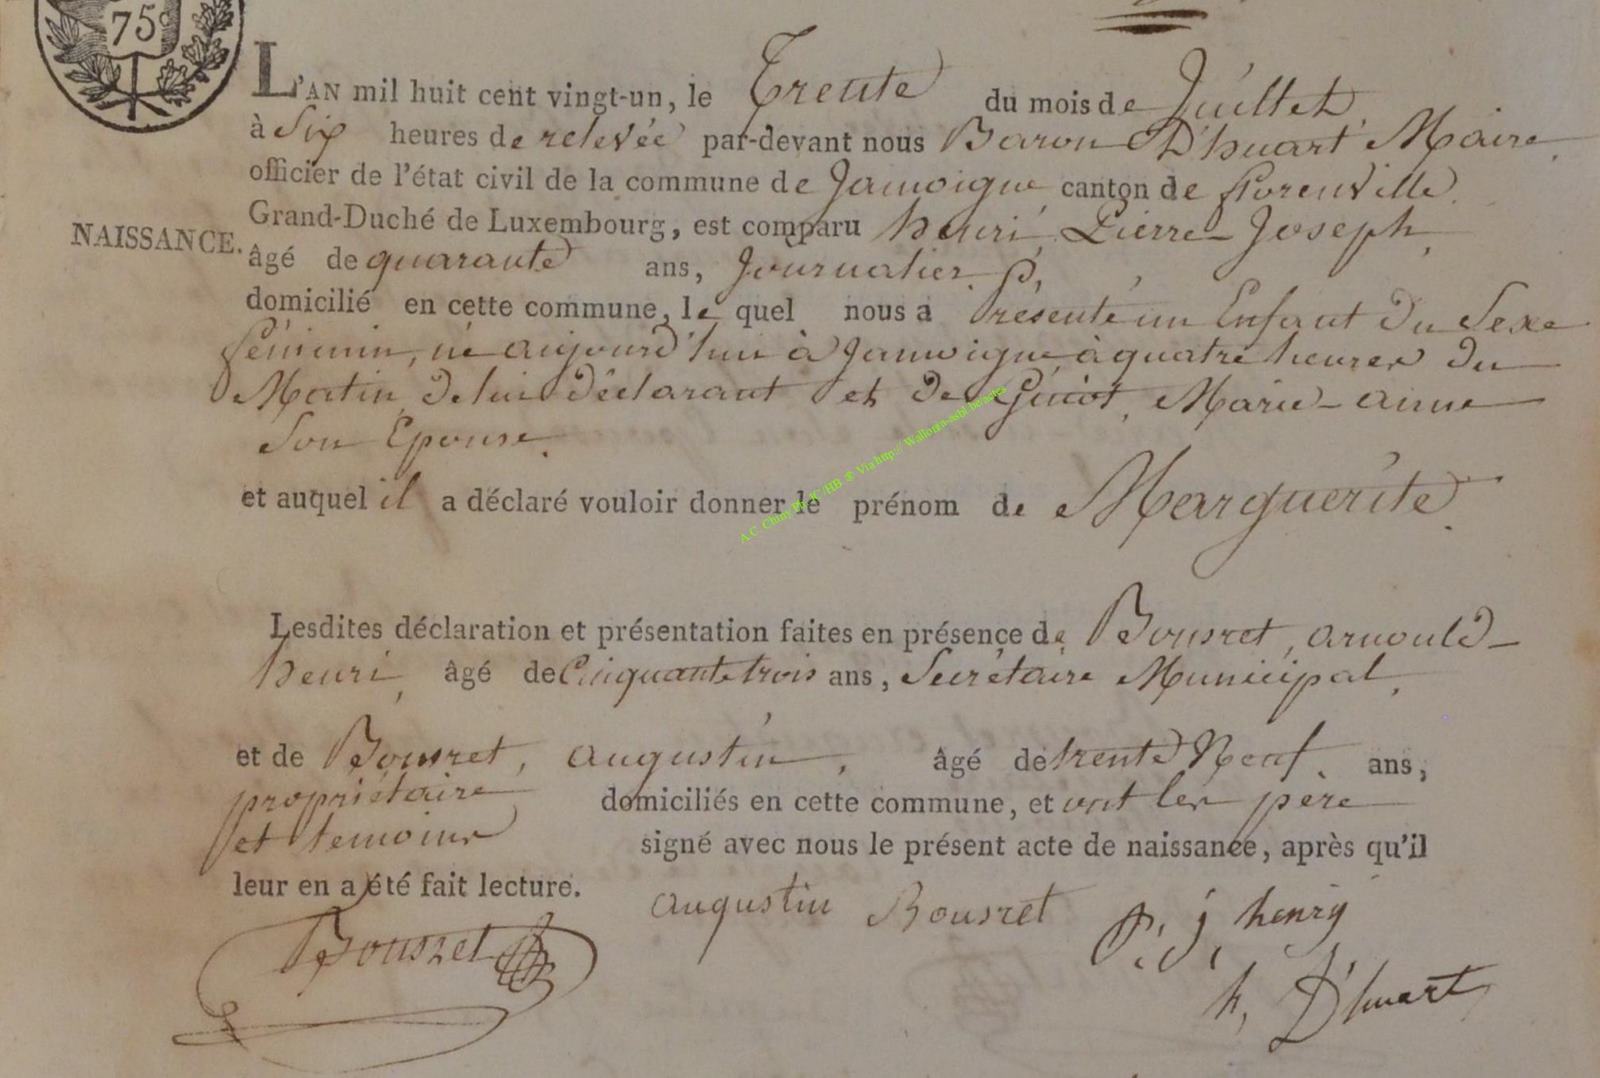 75c
L'AN mil huit cent vingt-un, le Trente du mois de Juillet
à Six heures de relevée par-devant nous Baron D'huart Maire,
officier de l'état civil de la commune de Jamoigne canton de florenville
NAISSANCE.
Grand-Duché de Luxembourg, est comparu henri, Pierre-Joseph,
âgé de quarante ans, Journalier
domicilié en cette commune, le quel nous a présenté un Enfant du Sexe
féminin, né aujourd'hui à Jamoigne à quatre heures du
Matin, de lui déclarant et de Guiot, Marie-anne
Son Epouse.
et auquel il a déclaré vouloir donner le prénom de Marguerite.
A.C. Chiny Ph. JC/HB ® Via http:// Wallonia-asbl.be/actes
Lesdites déclaration et présentation faites en présence de Bousret, arnould-
henri, âgé de Cinquante trois ans, Secrétaire Municipal,
et de Bousret, augustin, âgé de trente Neuf ans,
propriétaire domiciliés en cette commune, et ont les père
et temoins signé avec nous le présent acte de naissance, après qu'il
leur en a été fait lecture.
augustin Bousret p. j. henry
Bousret
h, D'huart